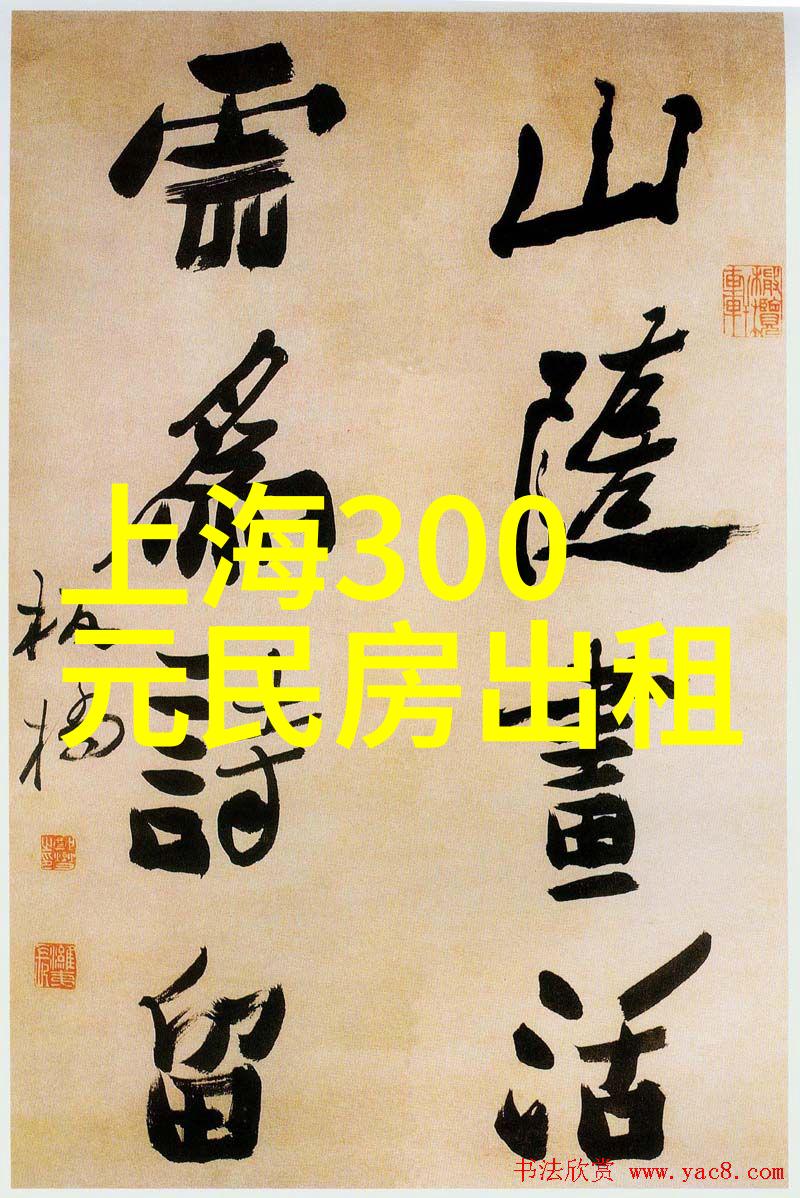 山隨畫活
雲爲詩留
板橋
上海300
元民房出租
书法欣赏 www.yac8.com